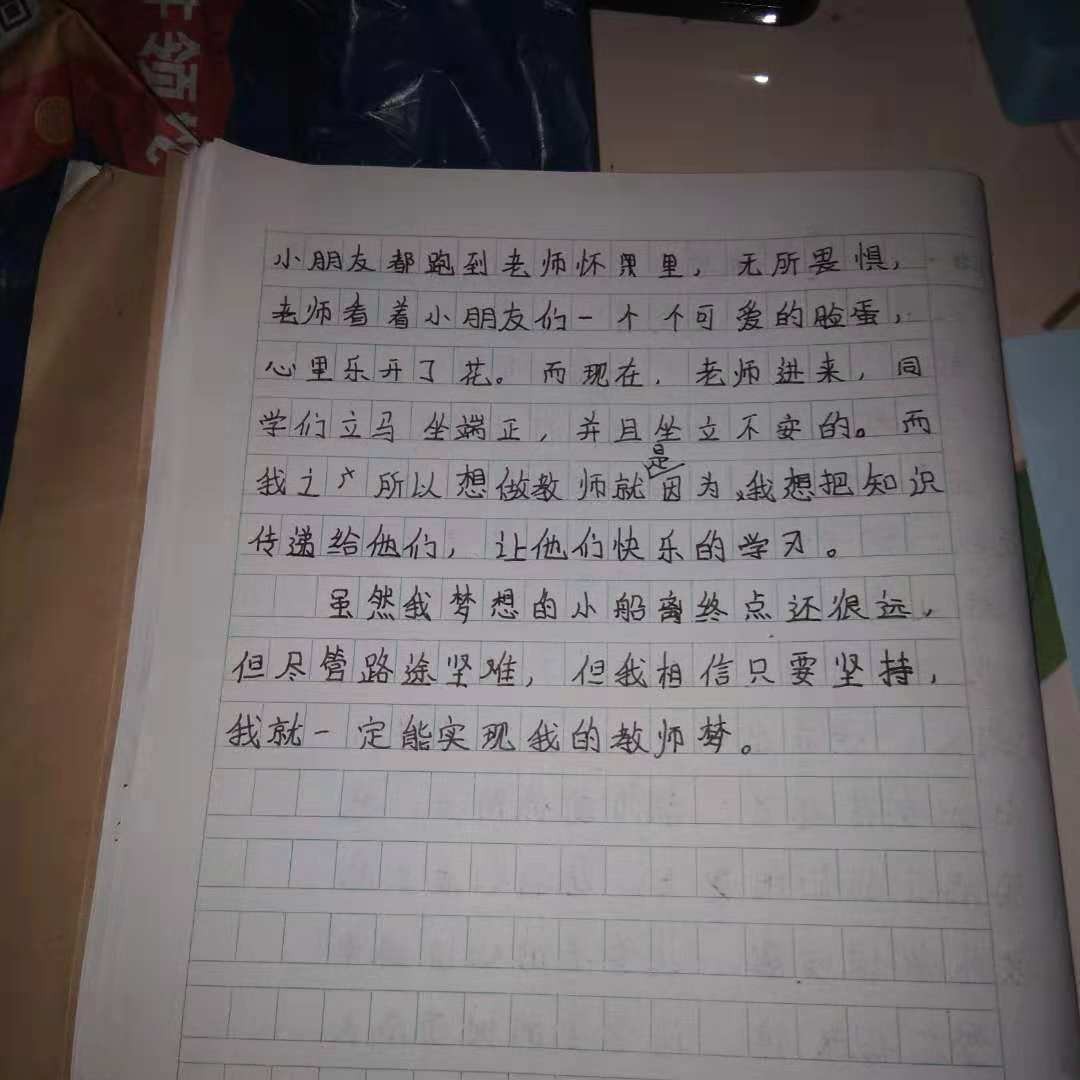 小朋友都跑到老师怀里，无所畏惧，
老师看着小朋友们一个个可爱的脸蛋，
心里乐开了花。而现在，老师进来，同
学们立马坐端正，并且坐立不安的。而
我之所以想做教师就是因为，我想把知识
传递给他们，让他们快乐的学习。
虽然我梦想的小船离终点还很远，
但尽管路途坚难，但我相信只要坚持，
我就一定能实现我的教师梦。